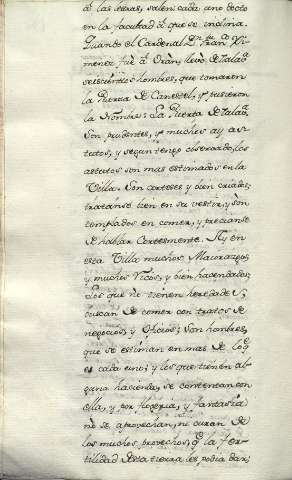 á las letras, salen cada uno docto
en la facultad á que se inclina.
Quando el Cardenal Dn. Franco. Xi-
menez fue á Orán, llevó de Talavª
seiscientos hombres, que tomaron
la Puerta de Canestel, y pusieron
la Nombre: La Puerta de Talavª.
Son prudentes, y muchos ay as-
tutos, y segun tengo observado, los
astutos son mas estimados en la
Villa. Son corteses y bien criados;
tratanse bien en su vestir, y son
templados en comer, y precianse
de hablar Cortesmente. Ay en
esta Villa muchos Mayorazgos,
y muchos Ricos, y bien hacendados;
los que no tienen heredades,
buscan de comer con tratos de
negocios, y Oficios; Son hombres,
que se estiman en mas de lo q
es cada uno; y los que tienen al-
guna hacienda, se contentan con
ella, y por flogería, y fantasía
no se aprovechan, ni curan de
los muchos provechos, q la fer-
tilidad de la tierra les podia dar;